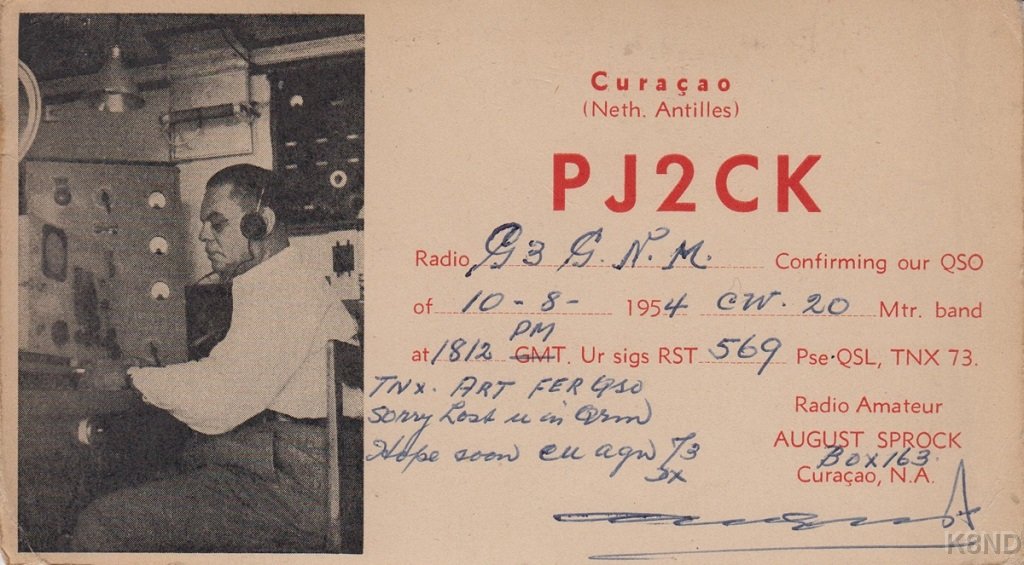 Curaçao
(Neth. Antilles)
PJ2CK
Radio G3 G.N.M. Confirming our QSO
of 10-8- 1954 CW. 20 Mtr. band
PM
at 1812 GMT. Ur sigs RST 569 Pse QSL, TNX 73.
TNX. ART FER QSO
Sorry Lost u in Qrm
Hope soon cu agn 73
DX
Radio Amateur
AUGUST SPROCK
Box 163.
Curaçao, N.A.
August
K8ND